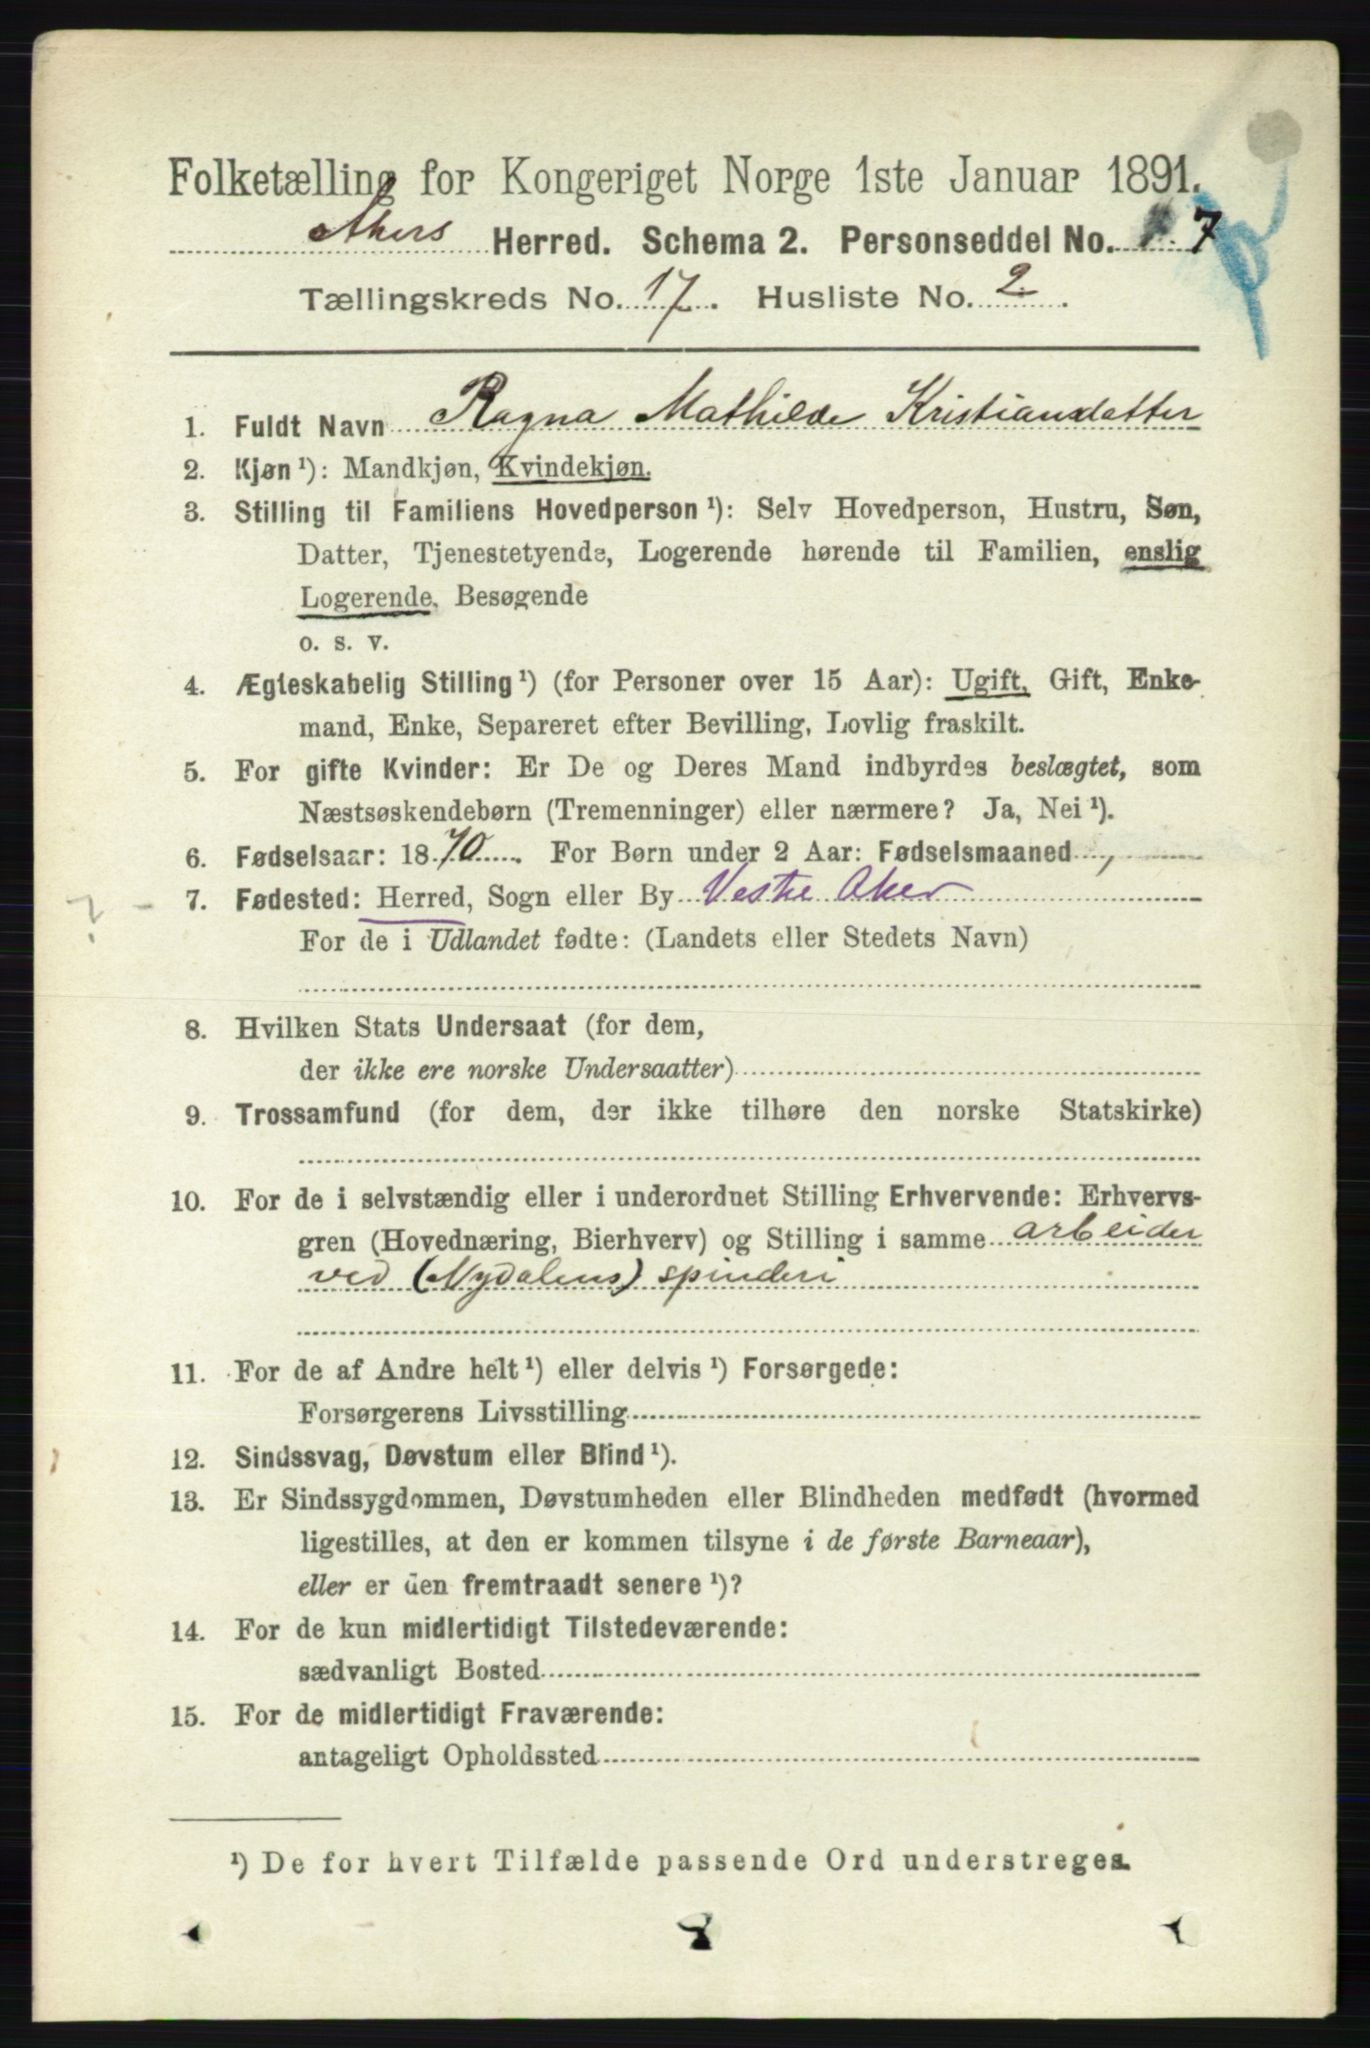 Folketælling for Kongeriget Norge 1ste Januar 1891.
Akers Herred. Schema 2. Personseddel No. 7
Tællingskreds No. 17. Husliste No. 2.
1. Fuldt Navn Ragna Mathilde Kristiansdatter
2. Kjøn ¹): Mandkjøn, Kvindekjøn.
3. Stilling til Familiens Hovedperson ¹): Selv Hovedperson, Hustru, Søn,
Datter, Tjenestetyende, Logerende hørende til Familien, enslig
Logerende, Besøgende
o. s. v.
4. Ægteskabelig Stilling ¹) (for Personer over 15 Aar): Ugift, Gift, Enke-
mand, Enke, Separeret efter Bevilling, Lovlig fraskilt.
5. For gifte Kvinder: Er De og Deres Mand indbyrdes beslægtet, som
Næstsøskendebørn (Tremenninger) eller nærmere? Ja, Nei ¹).
6. Fødselsaar: 1870. For Børn under 2 Aar: Fødselsmaaned
? - 7. Fødested: Herred, Sogn eller By Vestre Aker
For de i Udlandet fødte: (Landets eller Stedets Navn)
8. Hvilken Stats Undersaat (for dem,
der ikke ere norske Undersaatter)
9. Trossamfund (for dem, der ikke tilhøre den norske Statskirke)
10. For de i selvstændig eller i underordnet Stilling Erhvervende: Erhvervs-
gren (Hovednæring, Bierhverv) og Stilling i samme arbeider
ved (Nydalens) spinderi
11. For de af Andre helt ¹) eller delvis ¹) Forsørgede:
Forsørgerens Livsstilling
12. Sindssvag, Døvstum eller Blind ¹).
13. Er Sindssygdommen, Døvstumheden eller Blindheden medfødt (hvormed
ligestilles, at den er kommen tilsyne i de første Barneaar),
eller er den fremtraadt senere ¹)?
14. For de kun midlertidigt Tilstedeværende:
sædvanligt Bosted
15. For de midlertidigt Fraværende:
antageligt Opholdssted
¹) De for hvert Tilfælde passende Ord understreges.